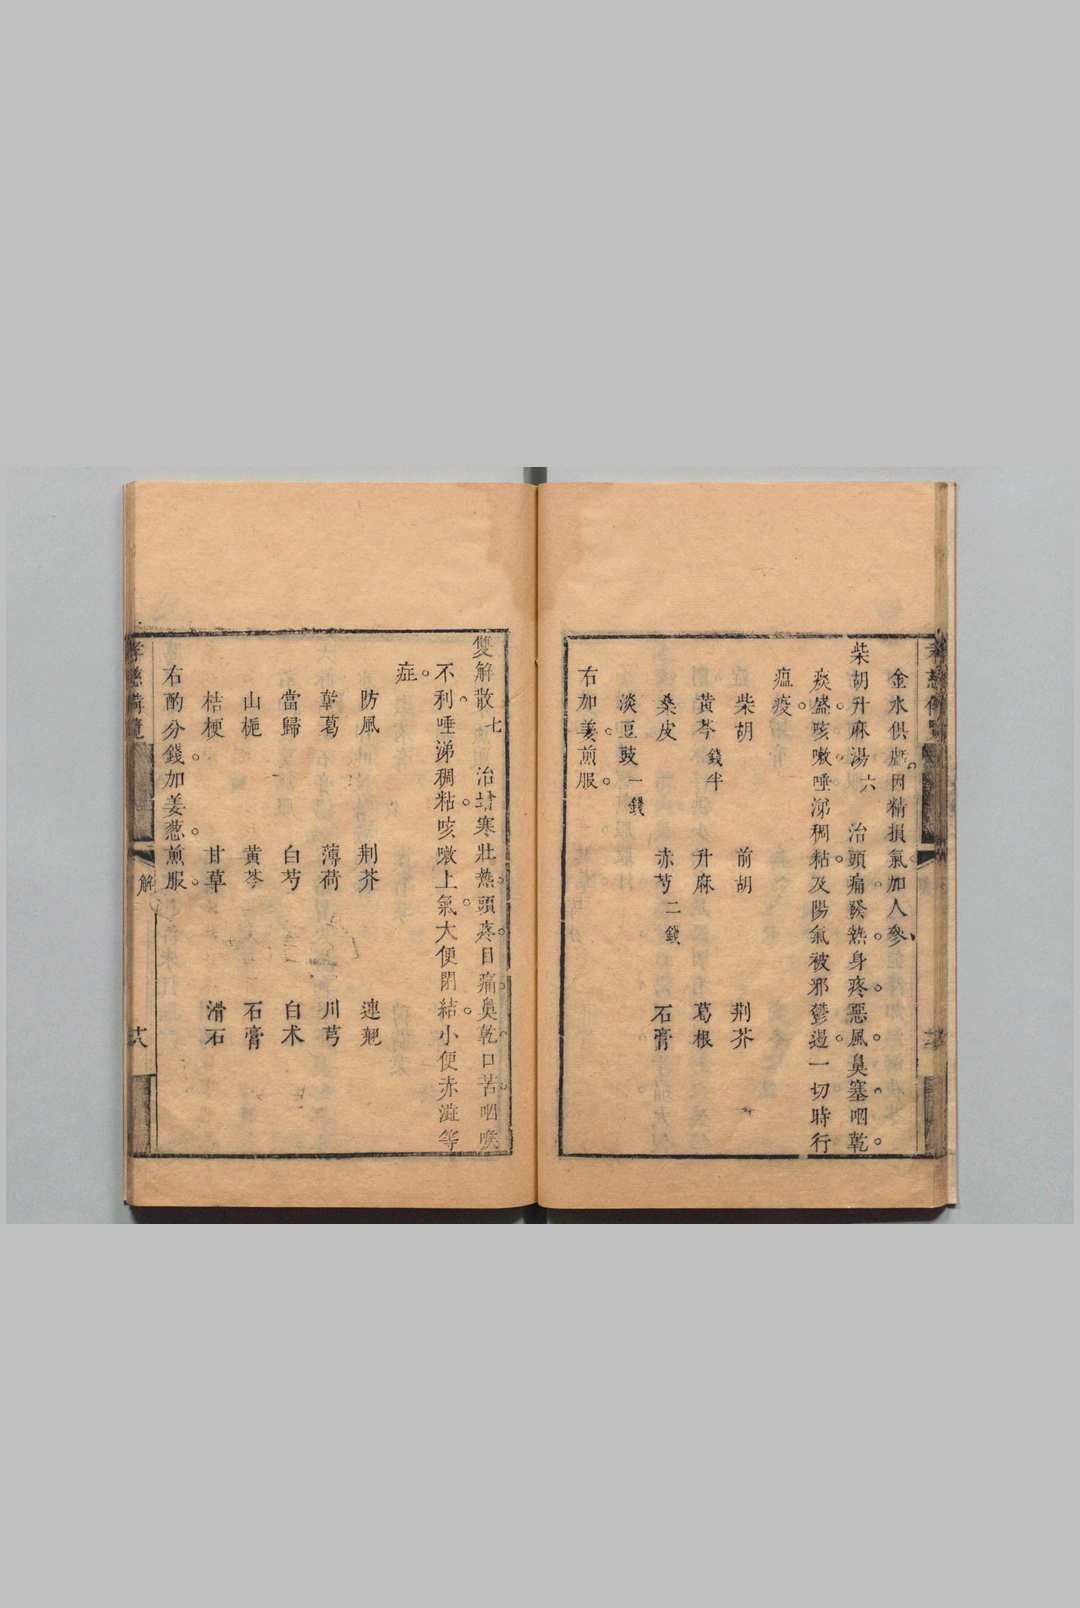 金水俱虛因精損氣加人參
柴胡升麻湯六　治頭痛發熱身疼惡風鼻塞咽乾
痰盛咳嗽唾涕稠粘及陽氣被邪鬱遏一切時行
瘟疫
柴胡　前胡　荆芥
黃芩錢半　升麻　葛根
桑皮　赤芍二錢　石膏
淡豆豉一錢
右加姜煎服
雙解散七　治封寒壯熱頭疼目痛鼻乾口苦咽喉
不利唾涕稠粘咳嗽上氣大便閉結小便赤澁等
症
防風　荆芥　連翹
麻葛　薄荷　川芎
當歸　白芍　白术
山梔　黃芩　石膏
桔梗　甘草　滑石
右酌分錢加姜葱煎服
孝慈備覽
解
十八